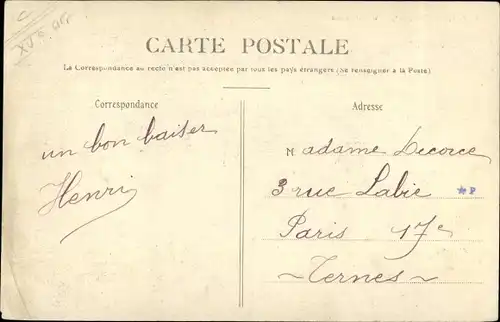 XVe arr
CARTE POSTALE
La Correspondance au recto n'est pas acceptée par tous les pays étrangers (Se renseigner à la Poste)
Correspondance
un bon baiser
Henri
Adresse
Madame Decorce
3 rue Labie
★P
Paris 17e
~Ternes~